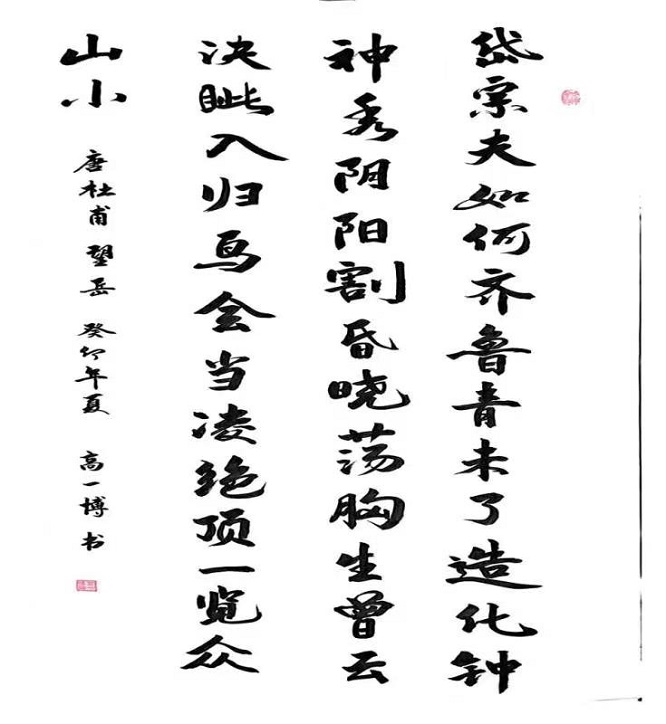 岱宗夫如何齐鲁青未了造化钟
神秀阴阳割昏晓荡胸生曾云
决眦入归鸟会当凌绝顶一览众
山小
唐杜甫望岳 癸卯年夏 高一博书